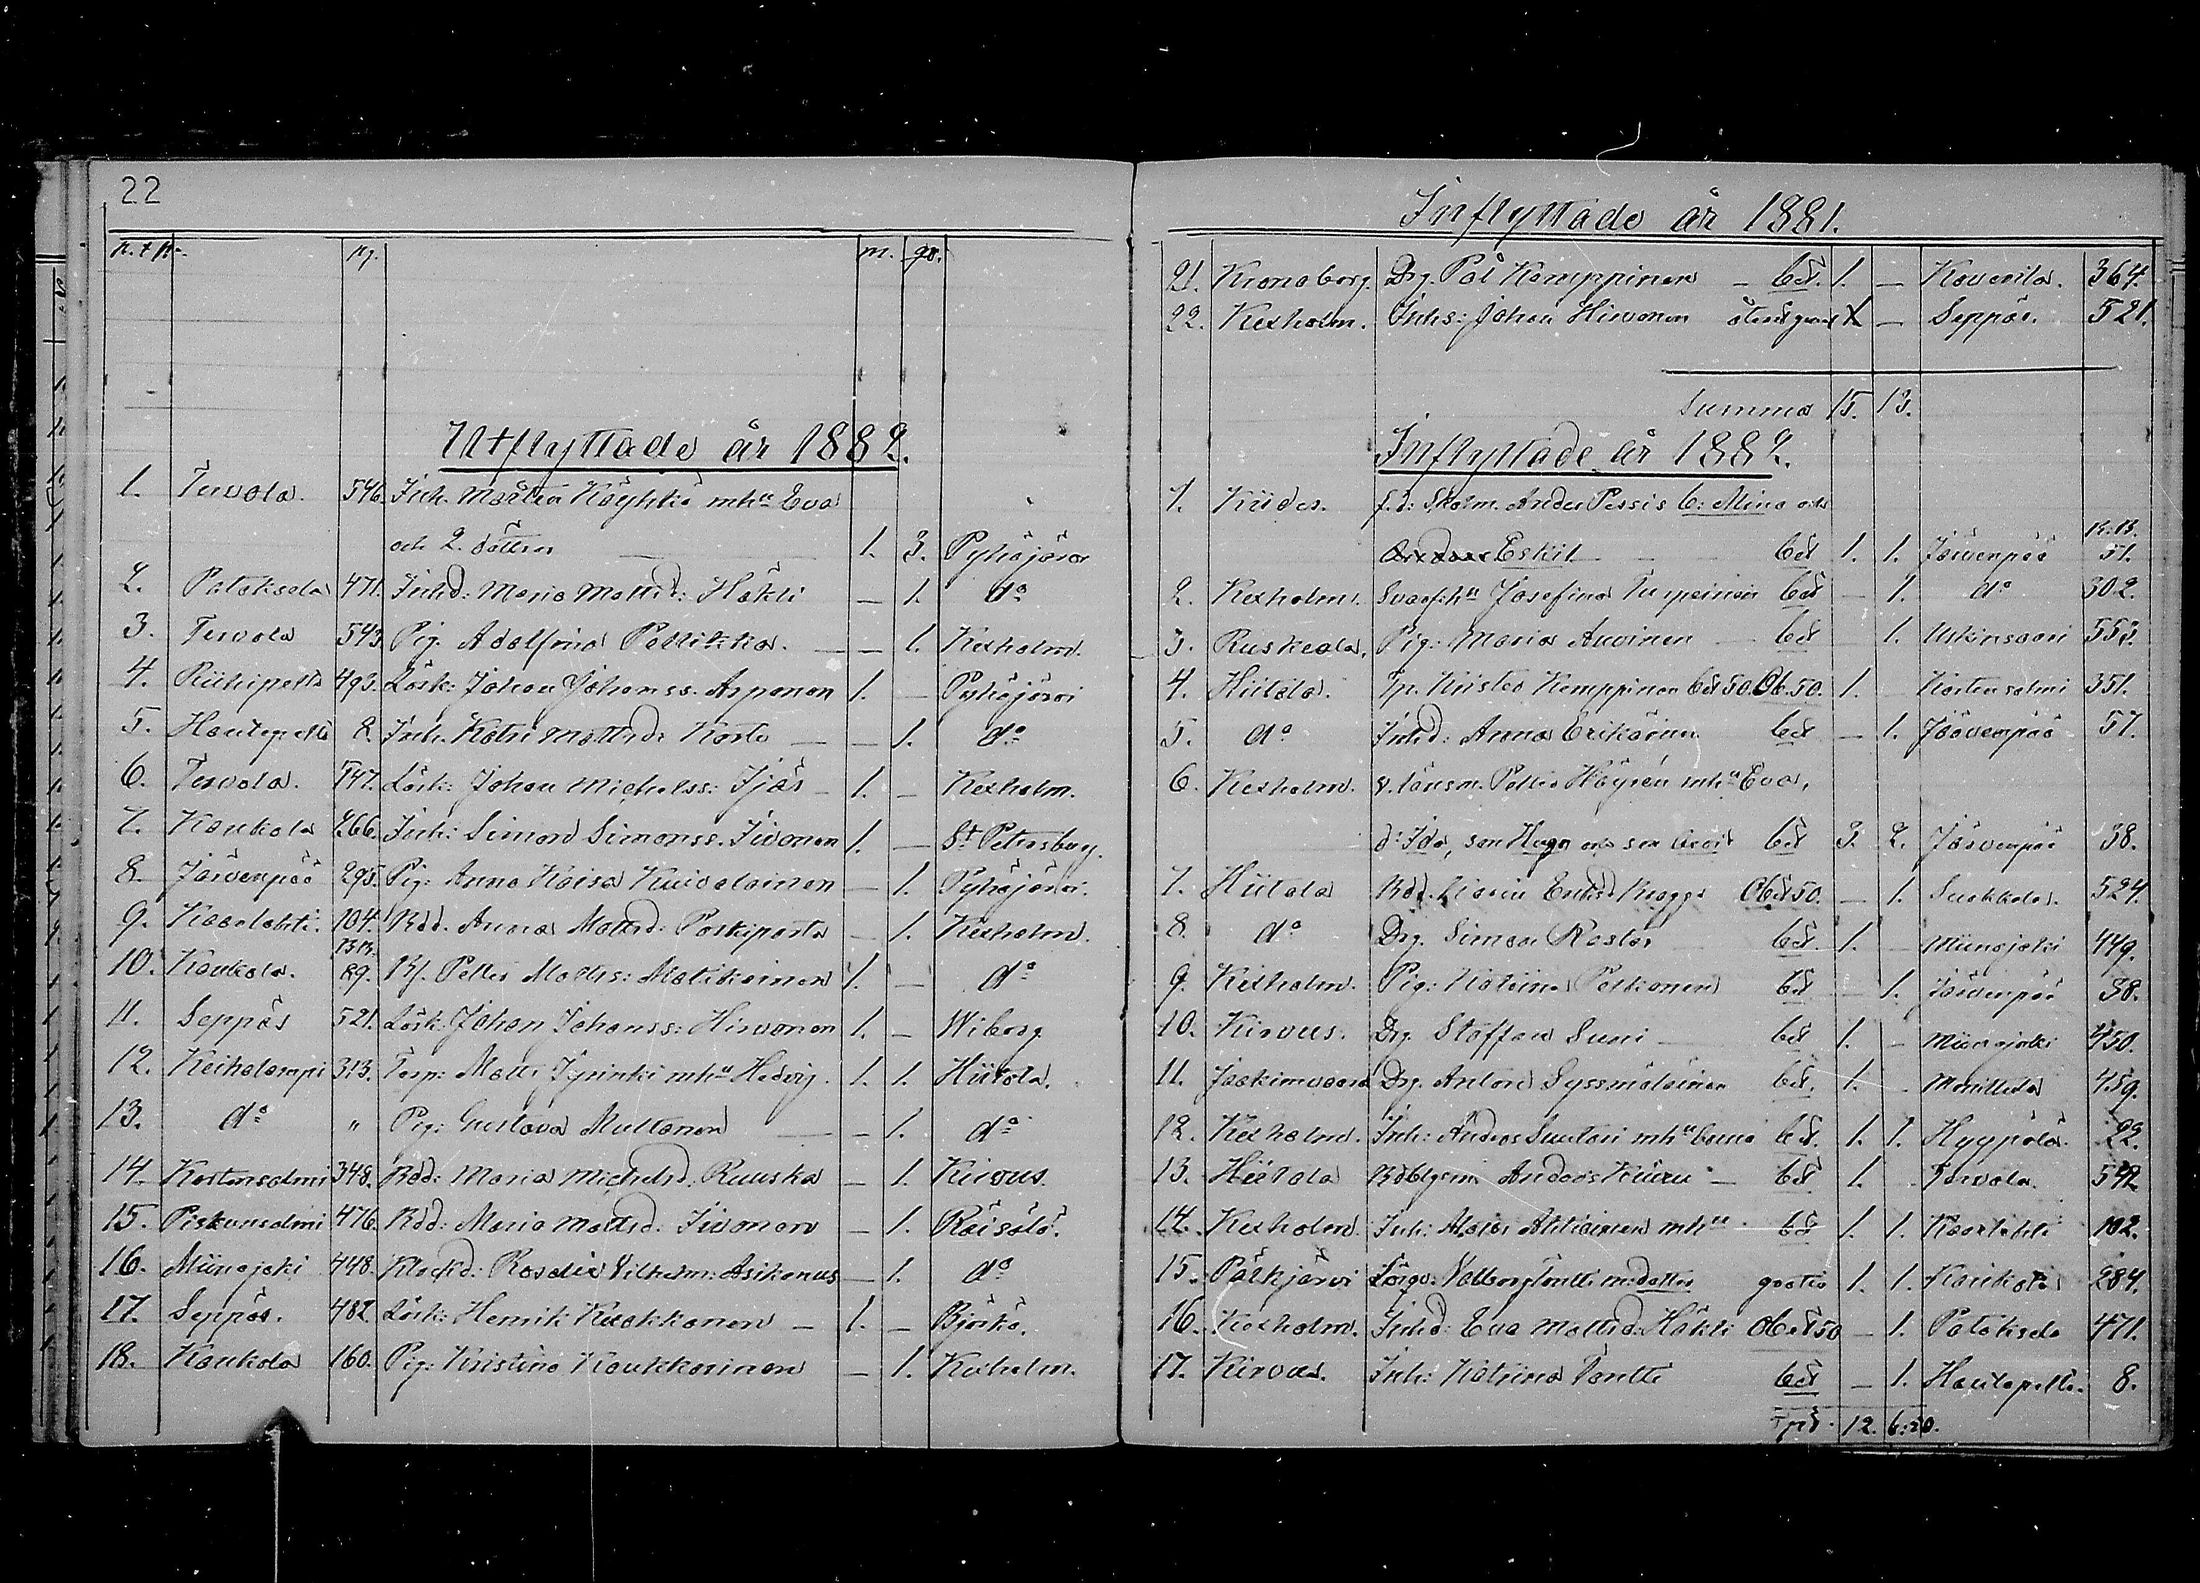 22
m. qv.
Utflyttade år 1882.
1. Tervola. 546. Inh. Mårten Käyhkö mhu Eva
och 2. döttrar 1. 3. Pyhäjärvi
2. Pataksela 471. Inhd: Maria Mattsd: Häkli — 1. do
3. Tervola 543. Pig. Adolfina Pellikka. — 1. Kexholm.
4. Riihipelto 493. Lösk: Johan Johanss. Asponen 1. — Pyhäjärvi
5. Hautapelto 8. Inh. Katri Mattsd: Korte — 1. do
6. Tervola. 547. Lösk: Johan Michelss: Ijäs 1. — Kexholm.
7. Kaukola 266. Inh: Simon Simonss. Iivonen 1. — St Petersburg.
8. Järvenpää 295. Pig: Anna Kaisa Kuivalainen — 1. Pyhäjärvi.
9. Kaarlahti. 104. Bdd. Anna Mattsd: Paskiparta — 1. Kexholm.
10. Kaukola. 89. Petter Matts: Matikainen 1. — do
11. Seppäs 521. Lösk: Johan Johanss: Hirvonen 1. — Wiborg
12. Keiholampi 313. Torp: Matti Jyrinki mhu Hedvig. 1. 1. Hiitola.
13. do " Pig: Gustava Multanen — 1. do
14. Kortensalmi 348. Bdd: Maria Michelsd: Ruuska — 1. Kirvus.
15. Piskunsalmi 476. Bdd: Maria Mattsd: Iivonen — 1. Räisälä.
16. Miinajoki 448. Klockd: Rosalie Vilhelm: Asikanus — 1. do
17. Seppäs. 482. Lösk: Henrik Kuokkanen 1. — Björkö.
18. Kaukola 160. Pig: Kristina Kaukkarinen — 1. Kexholm.
Inflyttade år 1881.
21. Kronoborg. Drg. Pål Kemppinen — bet. 1. — Kaverila. 364.
22. Kexholm. Inhs: Johan Hirvonen — Seppäs. 521.
Summa 15. 13.
Inflyttade år 1882.
1. Kides. f.d: Skolm. Anders Pessis b: Mina och
Eskil bet 1. 1. Järvenpää 51.
2. Kexholm. Josefina bet — 1. do 302.
3. Ruskeala. Pig: Maria Auvinen bet 1. Uskinsaari 553.
4. Hiitola. Tp. Kristeo Kemppinen bet 50. Ob. 50. 1. Kortensalmi 351.
5. do Inhd: Anna Erikäinen bet — 1. Järvenpää 57.
6. Kexholm. v. länsm. Petter Häyrén mhu Eva,
d: Ida, son Hugo och son bet 3. 2. Järvenpää 38.
7. Hiitola Eriksd Obet 50. — 1. Suokkola. 524.
8. do Drg. Simon bet. 1. Miinajoki 449.
9. Kexholm. Pig: Katrina Pelkonen bet — 1. Järvenpää 38.
10. Kirvus. Drg. Staffan Suni bet 1. — Miinajoki 450.
11. Jaakimvaara Drg. Anton Syssmäläinen bet. 1. 459.
12. Kexholm. Inh: Anders Suutari mhu bet. 1. 1. Hyypölä. 22.
13. Hiitola Anders Kiuru — bet 1. Tervola. 542
14. Kexholm. Inh: Ahtiainen mhu bet 1. 1. Kaarlahti. 102.
15. Pälkjärvi gratis 1. 1. Kaukola 284.
16. Kexholm. Inhd: Eva Mattsd: Häkli Obet 50 — 1. Pataksela 471.
17. Kirvus. Inh: Katrina Tontti bet — 1. Hautapelto. 8.
12. 6:50.